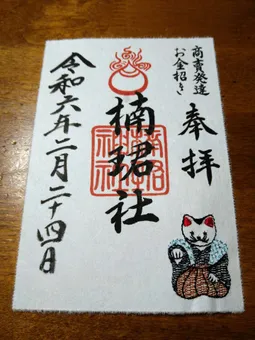 商売発達
お金招き
奉拝
楠珺社
令和六年二月二十四日